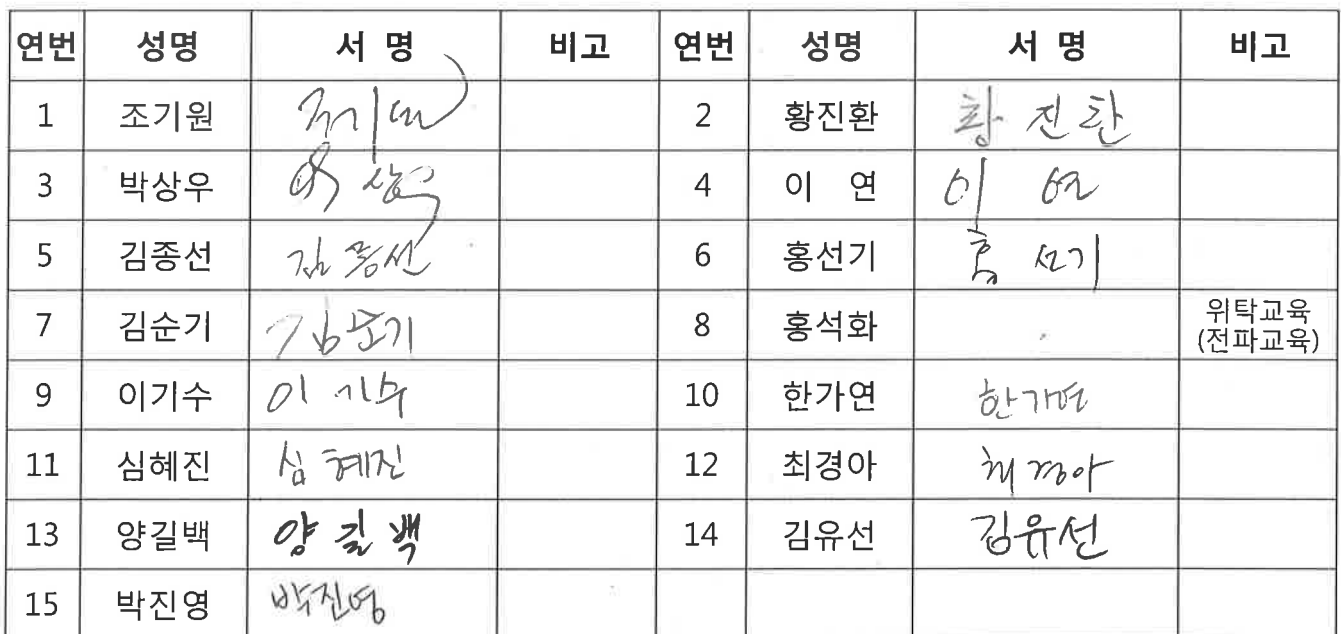 연번 성명 서 명 비고 연번 성명 서 명 비고
1 조기원 조기원 2 황진환 황진환
3 박상우 박상우 4 이 연 이 연
5 김종선 김종선 6 홍선기 홍선기
7 김순기 김순기 8 홍석화 위탁교육
(전파교육)
9 이기수 이기수 10 한가연 한가연
11 심혜진 심혜진 12 최경아 최경아
13 양길백 양길백 14 김유선 김유선
15 박진영 박진영